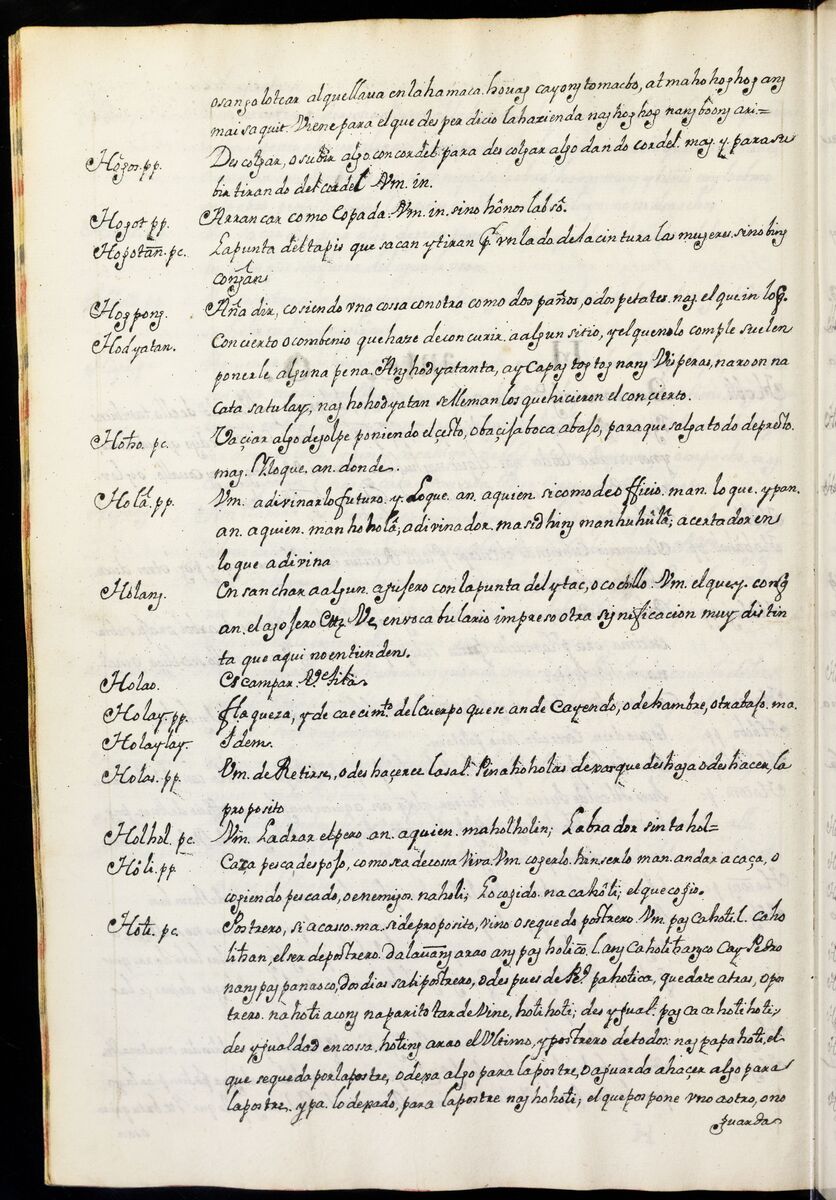 o sangolotear al que lleva en la hamaca. houag cayong tomacbo, at ma ho hog hog ang
mai saquit. Viene para el que des per dicio la hazienda nag hog hog nang bôong ari=
Hogos. pp. Des colgar, o subir algo con cordel. para des colgar algo dando cordel. mag. y. para su
bir tirando del cordel. Vm. in.
Hogot pp. Arrancar como Copada. Vm. in. sino hônos labsô.
Hogotan. pc. La punta del tapis que sacan y tiran p.r vn lado de la cintura las mugeres. sino bin
Hogpong. Aña dir, cosiendo vna cossa con otra como dos paños, o dos petates. nag. el que. in lo q.
Hodyatan. Concierto o combenio que haze de concurir. a algun sitio, y el que no lo comple suelen
ponerle alguna pena. Ang hodyatanta, ay Capag togtog nang Visperas, naroon na
cata sa tulay, nag ho hodyatan se lleman los que hicieron el conçierto.
Hoho. pc. Vaçiar algo de golpe poniendo el çesto, o baçija boca abajo, para que salga todo de presto.
mag. Y lo que. an. donde.
Hola. pp. Vm. adivinar lo futuro. y. Lo que. an. a quien. si como de officio. man. lo que. ypan.
an. a quien. man ho hola, adivinador. masidhing manhuhula; acertador en
lo que adivina
Holang. Ensanchar a algun agujero con la punta del ytac, o cochillo. Vm. el que. y. con q.
an. el agojero en vocabulario impreso otra significacion muy distin
ta que aqui no entienden.
Holao. Escampar.
Holay. pp. flaqueza, y de caecim.to del cuerpo que se an de Cayendo, o de hambre, o trabajo. ma.
Holaylay. Idem.
Holas. pp. Vm. de Retirse, o deshaçerce la sal. Pinahoholas de var que deshaja o deshacer, la
proposito
Holhol. pc. Vm. Ladrar el pero. an. a quien. maholholin; Labrador sintahol=
Hôli. pp. Caza pesca despojo, como sea de cossa viva. Vm. cogerlo. hin. ser lo man. andar a caça, o
cogiendo pescado, o enemigos. naholi; Lo cogido. nacahôli; el que cogio.
Holi. pc. Postrero, si acasso. ma. si de proposito, vino o se quedo postrero. Vm. pag caholi. l. caho
lihan, el ser de postrero. Dalauang arao ang pag holico. l. ang caholihanco cay Pedro
nang pag panaoco, dos dias sali postrero, o des pues de P.o pa holica, quedate atras, o pos
trero. na holi acong naparito tarde vine, holiholi; des ygual. pagcacaholiholi,
des ygualdad en cossa. holing arao el Vltimo, y postrero de todos. nagpapaholi, el
que se queda por la postre, o dexa algo para la postre, o aguarda a haçer algo para
la postre. ypa. lo dexado, para la postre nag hoholi; el que pospone vno a otro, o no
guarda